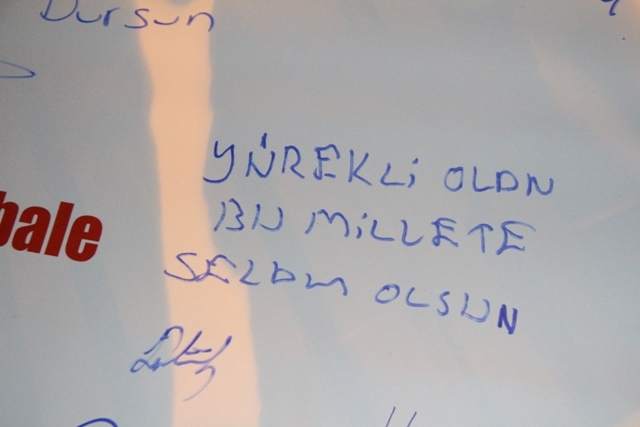 Dursun
YÜREKLİ OLAN
BU MİLLETE
bale
SELAM OLSUN